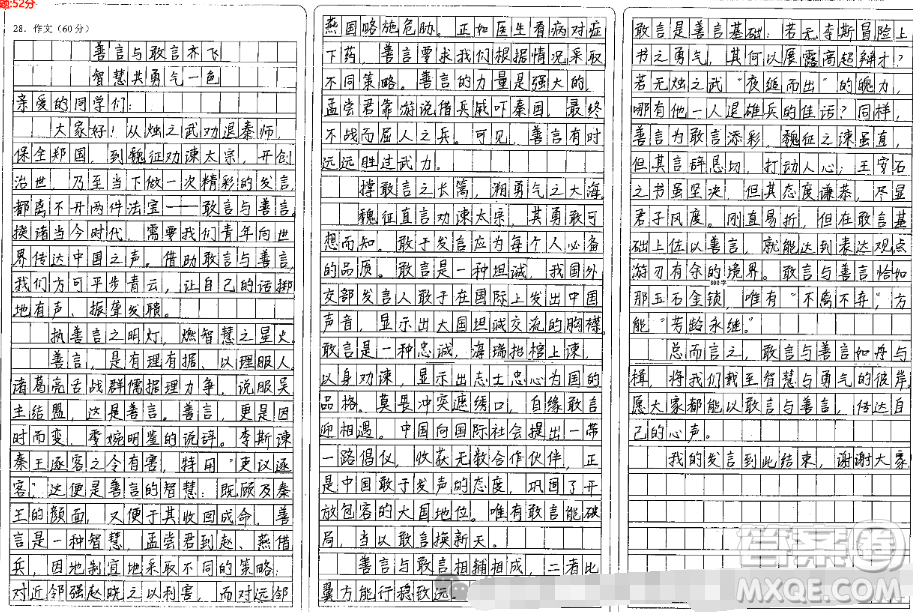 题:52分
28. 作文(60分)
善言与敢言亦飞
智慧共勇气一色
亲爱的同学们:
大家好!从烛之武劝退秦师,
保全郑国,到魏征劝谏太宗,开创
治世,乃至当下做一次精彩的发言,
都离不开两件法宝——敢言与善言。
换诸当今时代,需要我们青年向世
界传达中国之声。借助敢言与善言,
我们方可平步青云,让自己的话掷
地有声、振聋发聩。
执善言之明灯,燃智慧之星火
善言,是有理有据、以理服人。
诸葛亮舌战群儒据理力争,说服吴
主结盟,这是善言。善言,更是因
时而变,委婉明鉴的说辞。李斯谏
秦王逐客之令有害,特用“吏议逐
客”,这便是善言的智慧:既顾及秦
王的颜面,又便于其收回成命,善
言是一种智慧,孟尝君到赵、燕借
兵,因地制宜地采取不同的策略:
对近邻强赵晓之以利害,而对远邻
燕国略施危胁。正如医生看病对症
下药,善言要求我们根据情况采取
不同策略。善言的力量是强大的,
孟尝君靠游说借兵威吓秦国,最终
不战而屈人之兵。可见,善言有时
远远胜过武力。
撑敢言之长篙,溯勇气之大海
魏征直言劝谏太宗,其勇敢可
想而知。敢于发言应为每个人必备
的品质。敢言是一种坦诚,我国外
交部发言人敢于在国际上发出中国
声音,显示出大国坦诚交流的胸襟。
敢言是一种忠诚,海瑞抬棺上谏,
以身劝谏,显示出志士忠心为国的
品格。莫畏冲突遮绣口,自缘敢言
迎相遇。中国向国际社会提出一带
一路倡议,收获无数合作伙伴,正
是中国敢于发声的态度,巩固了开
放包容的大国地位。唯有敢言能破
局,当以敢言换新天。
善言与敢言相辅相成,二者比
翼方能行稳致远。
敢言是善言基础:若无李斯冒险上
书之勇气,其何以展露高超辩才?
若无烛之武“夜缒而出”的魄力,
哪有他一人退雄兵的佳话?同样,
善言为敢言添彩。魏征之谏虽直,
但其言辞恳切,打动人心;王安石
之书虽坚决,但其态度谦恭,尽显
君子风度。刚直易折,但在敢言基
础上佐以善言,就能达到表达观点
游刃有余的境界。敢言与善言恰如
那玉石金锁,唯有“不离不弃”,方
能“芳龄永继”。
总而言之,敢言与善言如舟与
楫,将我们载至智慧与勇气的彼岸,
愿大家都能以敢言与善言,传达自
己的心声。
我的发言到此结束,谢谢大家
答案圈
MXQE.COM